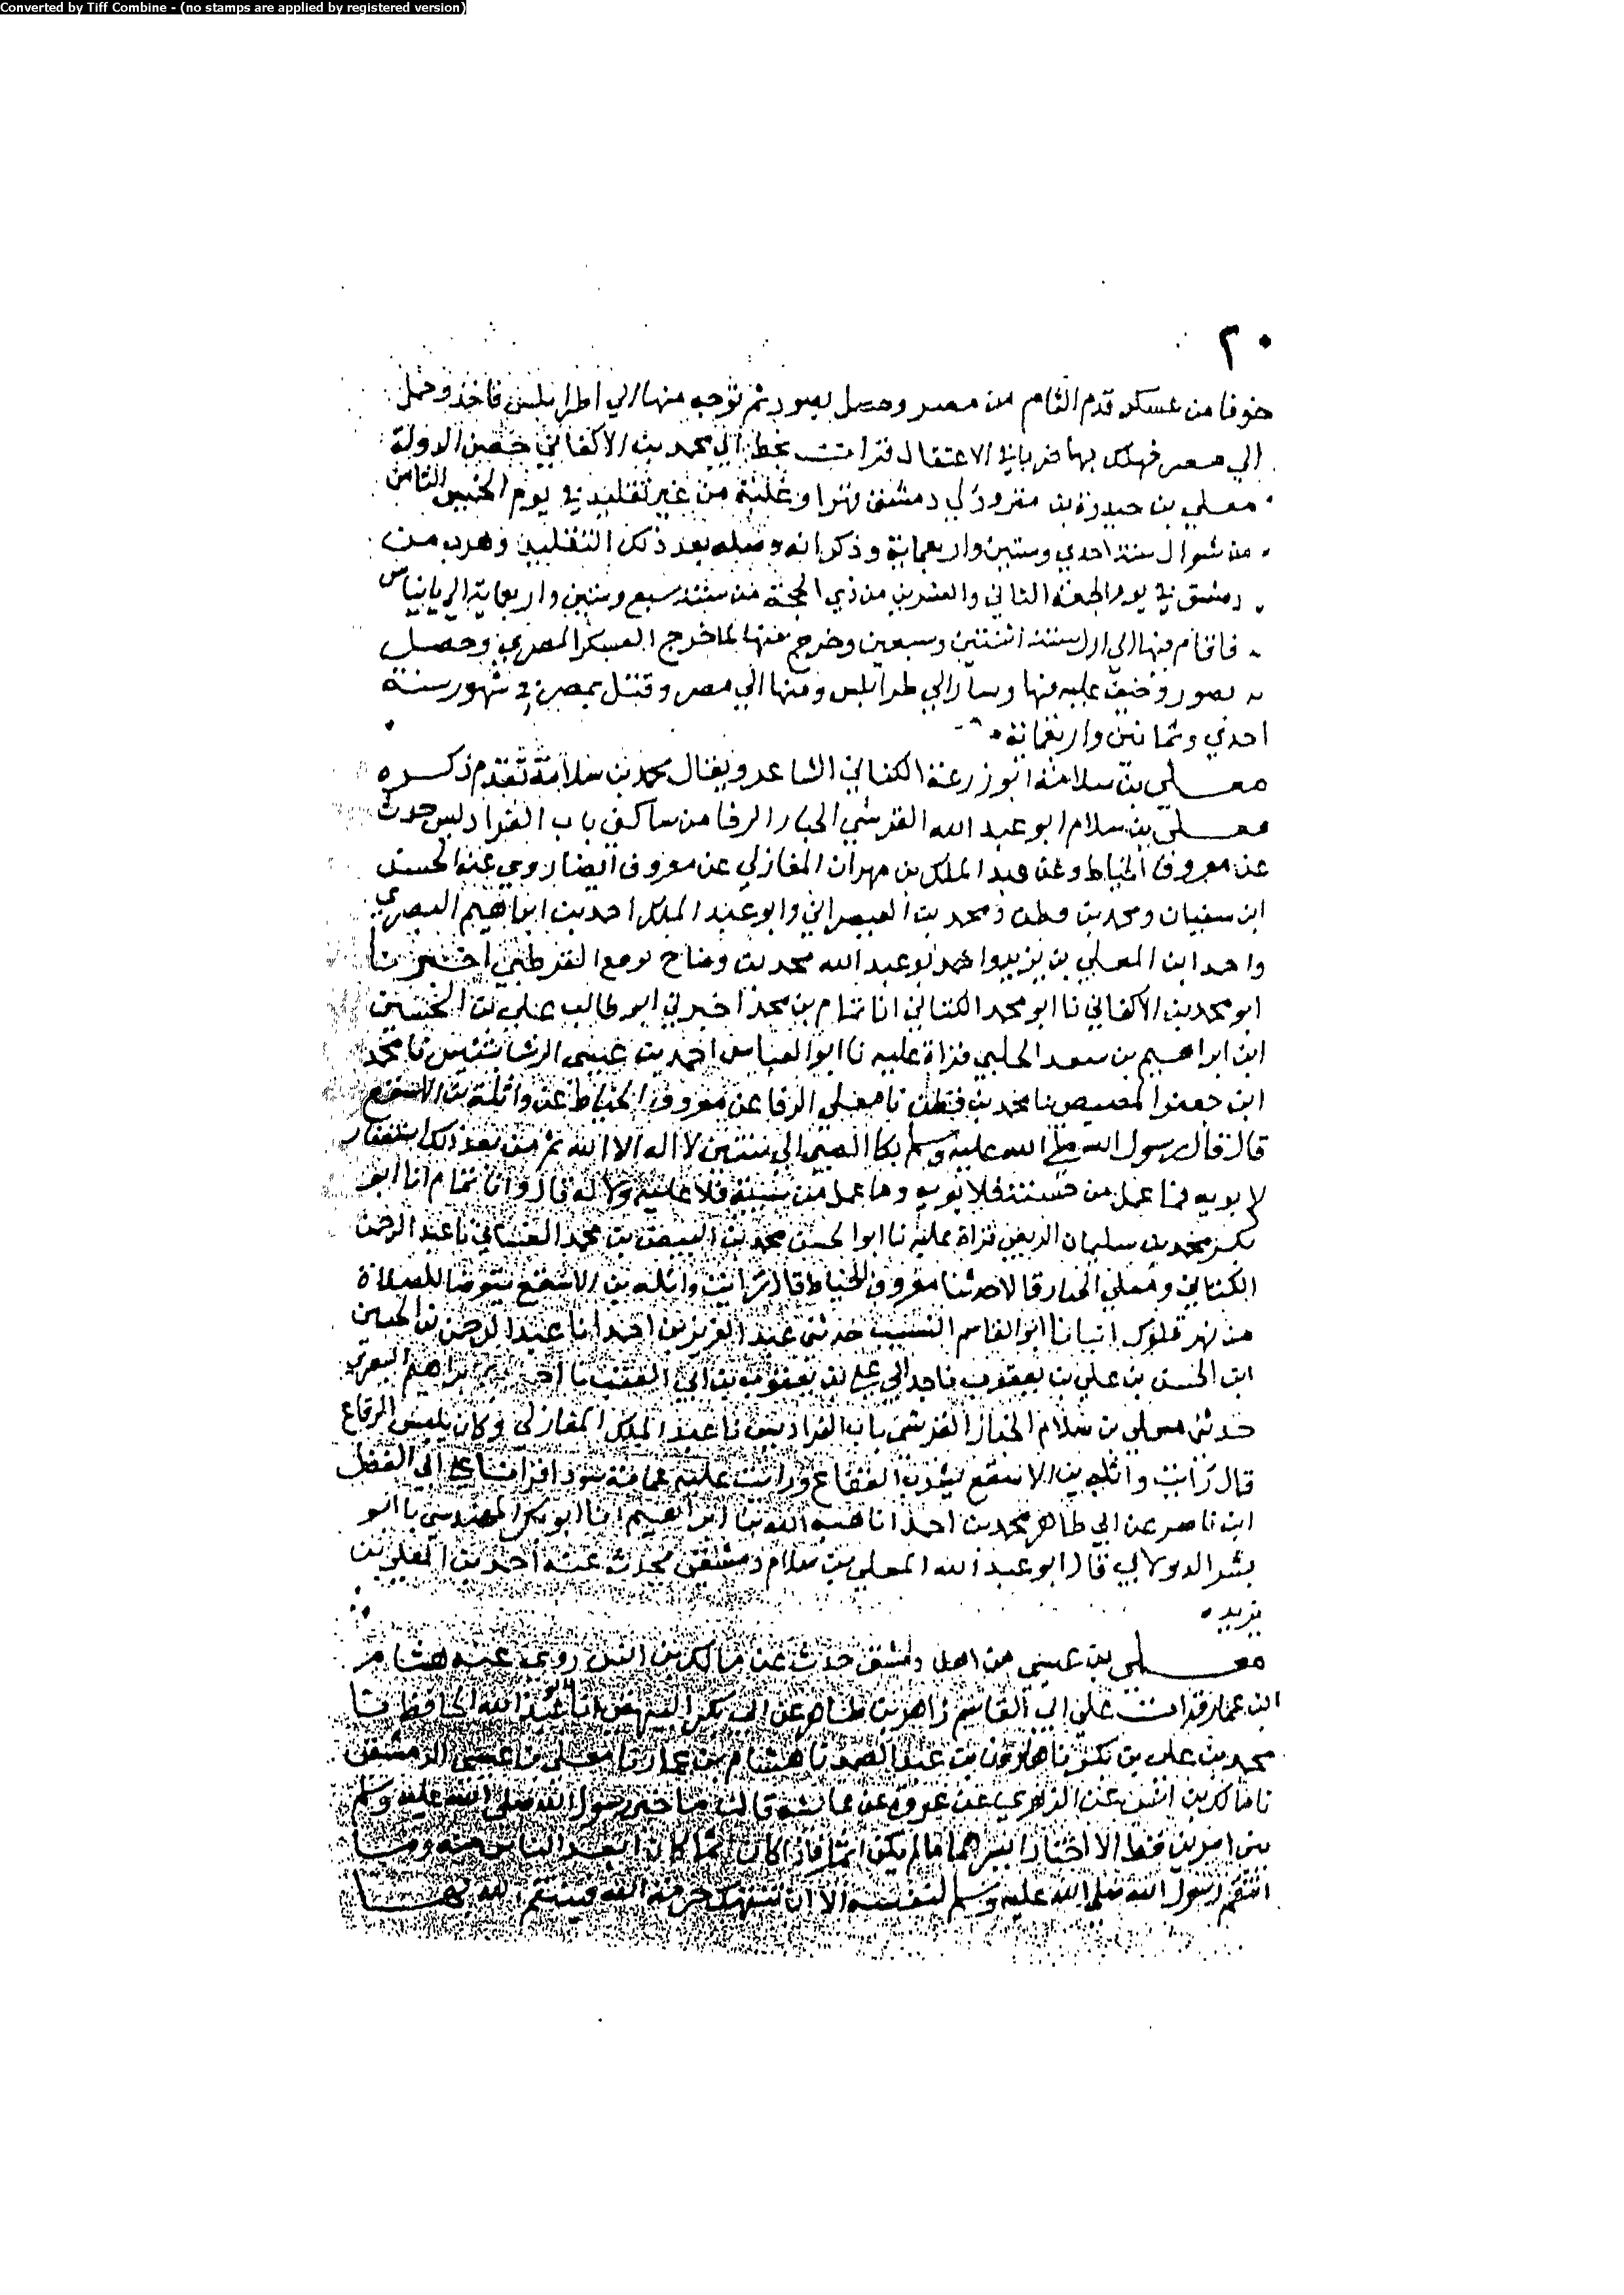 Converted by Tiff Combine - (no stamps are applied by registered version)
٢٠
خوفا من عسكر قدم الشام من مصر وحصل بصور ثم توجه منها الي اطرابلس فاخذ وحمل
الي مصر فهلك بها ضربا في الاعتقال قرات بخط ابي محمد بن الاكفاني حصن الدولة
معلي بن حيدرة بن منزو ولي دمشق قهرا وغلبة من غير تقليد في يوم الخميس الثامن
من شوال سنة احدي وستين واربعماية وذكر انه وصله بعد ذلك التقليد وهرب من
دمشق في يوم الجمعة الثاني والعشرين من ذي الحجة من سنة سبع وستين واربعماية الي بانياس
فاقام فيها الي اول سنة اثنتين وسبعين وخرج منها لما خرج العسكر المصري وحصل
بصور وخيف عليه منها وسار الي طرابلس ومنها الي مصر وقتل بمصر في شهور سنة
احدي وثمانين واربعماية
معلي بن سلامة ابو زرعة الكناني الشاعر ويقال محمد بن سلامة تقدم ذكره
معلي بن سلام ابو عبد الله القرشي الخباز الرفا من ساكني باب الفراديس حدث
عن معروف الخياط وعن عبد الملك بن مهران المغازلي عن معروف ايضا روي عنه الحسن
ابن سفيان ومحمد بن قطن ومحمد بن القيصراني وابو عبد الملك احمد بن ابراهيم البصري
واحمد ابن المعلي بن يزيد وابو عبد الله محمد بن وضاح القرطبي اخبرنا
ابو محمد بن الاكفاني نا ابو محمد الكتاني انا تمام بن محمد اخبرني ابو طالب علي بن الحسين
ابن ابراهيم بن سعد الحلبي قراة عليه نا ابو العباس احمد بن عيسى الوشا بتنيس نا محمد
ابن جعفر المصيصي نا محمد بن قطن نا معلي الرفا عن معروف الخياط عن واثلة بن الاسقع
قال قال رسول الله صلى الله عليه وسلم بكا الصبي الي سنتين لا اله الا الله ثم من بعد ذلك استغفار
لابويه فما عمل من حسنة فلابويه وما عمل من سيئة فلا عليه ولا له قال وانا تمام انا ابو
بكر محمد بن سليمان الربعي قراة عليه نا ابو الحسن محمد بن الفيض بن محمد الغساني نا عبد الرحمن
الكتاني ومعلي الخباز قالا حدثنا معروف الخياط قال رايت واثلة بن الاسقع يتوضا للصلاة
من نهر قلوك انبانا ابو القاسم النسيب حدثني عبد العزيز بن احمد انا عبد الرحمن بن الحسين
ابن الحسن بن علي بن يعقوب نا جدي علي بن يعقوب بن ابي العقب نا احمد بن ابراهيم البصري
حدثني معلي بن سلام الخباز القرشي بباب الفراديس نا عبد الملك المغازلي وكان يلبس الرقاع
قال رايت واثلة بن الاسقع يشرب الفقاع ورايت عليه عمامة سودا قرانا علي ابي الفضل
ابن ناصر عن ابي طاهر محمد بن احمد انا هبة الله بن ابراهيم انا ابو بكر المهندس نا ابو
بشر الدولابي قال ابو عبد الله المعلي بن سلام دمشقي محدث عنه احمد بن المعلي بن
يزيد
معلي بن عيسي من اهل دمشق حدث عن مالك بن انس روي عنه هشام
ابن عمار قرات علي ابي القاسم زاهر بن طاهر عن ابي بكر البيهقي انا ابو عبد الله الحافظ نا
محمد بن علي بن بكر نا هارون بن عبد الصمد نا هشام بن عمار نا معلي بن عيسى الدمشقي
نا مالك بن انس عن الزهري عن عروة عن عائشة قالت ما خير رسول الله صلى الله عليه وسلم
بين امرين قط الا اختار ايسرهما ما لم يكن اثما فاذا كان اثما كان ابعد الناس منه وما
انتقم رسول الله صلى الله عليه وسلم لنفسه الا ان تنتهك حرمة الله فينتقم لله بها